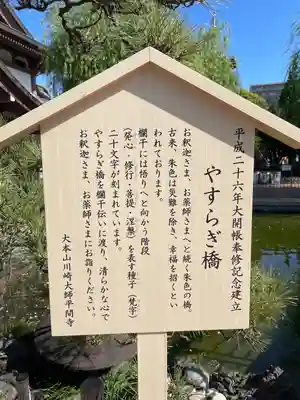 平成二十六年大開帳奉修記念建立
やすらぎ橋
お釈迦さま、お薬師さまへと続く朱色の橋、
古来、朱色は災難を除き、幸福を招くとい
われております。
欄干には悟りへと向かう階段
(発心・修行・菩提・涅槃)を表す種子(梵字)
二十文字が刻まれています。
やすらぎ橋を欄干伝いに渡り、清らかな心で
お釈迦さま、お薬師さまにお詣りください。
大本山川崎大師平間寺